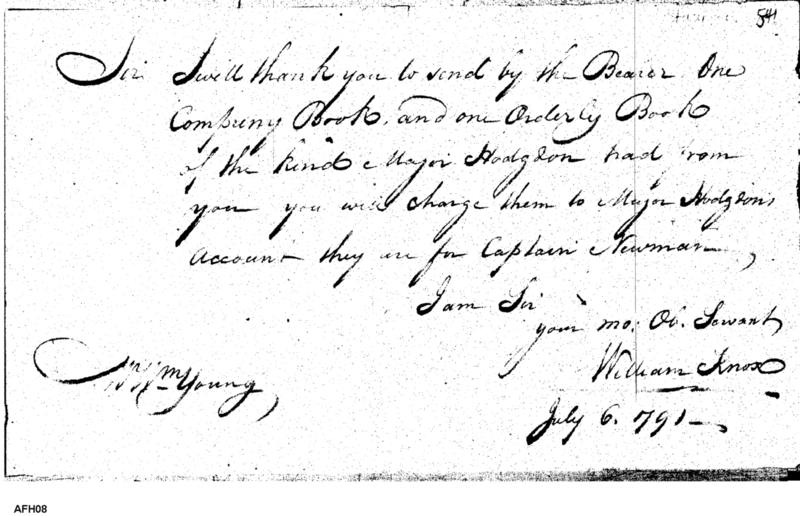 541
Sir I will thank you to send by the Bearer One
Company Book, and one Orderly Book
of the kind Major Hodgdon had from
you you will charge them to Major Hodgdon's
Account they are for Captain Newman,
I am Sir
your mo. Ob. Servant
William Knox
Mr Wm Young
July 6. 791
AFH08